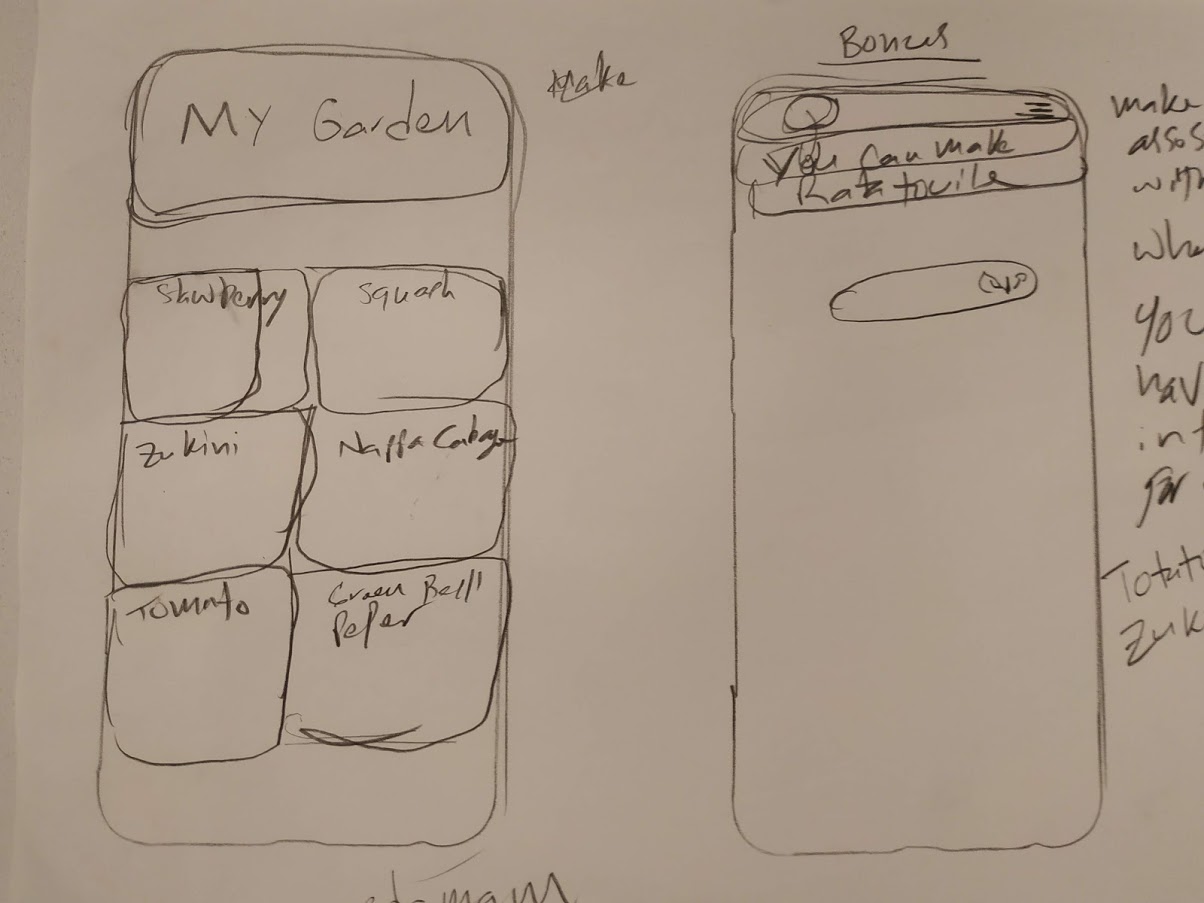 My Garden
Stawberry
Squash
Zukini
Nappa Cabage
Tomato
Green Bell
Peper
Make
Bonus
You can make
Ratatouile
make
assos
with
wha
you
hav
in
for
Zuk